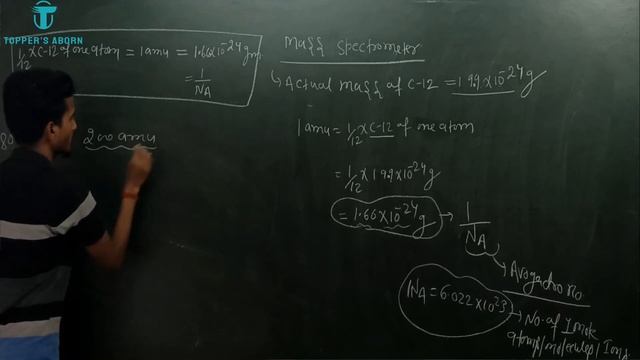 TOPPER'S ABORN
1/12 × C-12 of one atom = 1 amu = 1.66×10⁻²⁴ gm.
= 1/NA
80
200 amu
Mass spectrometer
↳ Actual mass of C-12 = 19.9×10⁻²⁴ g
1 amu = 1/12 × C-12 of one atom
= 1/12 × 19.9×10⁻²⁴ g
= 1.66×10⁻²⁴ g → 1/NA
Avogadro no.
NA = 6.022×10²³
→ No. of 1 mole
atoms/molecules/Ions